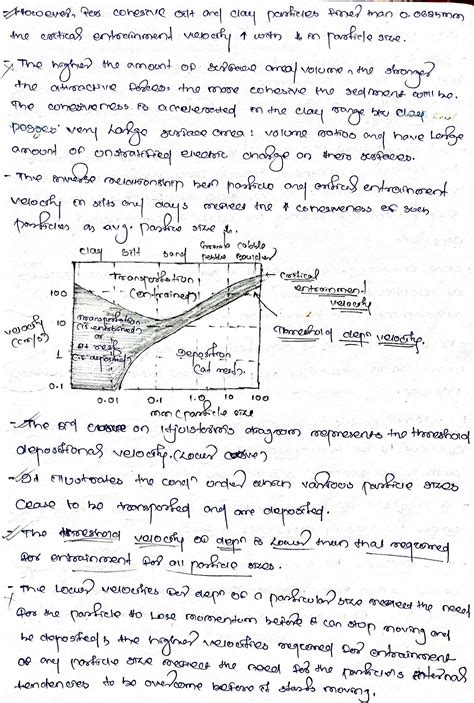 However, for cohesive silt and clay particles finer than 0.0625mm
the critical entrainment velocity ↑ with ↓ in particle size.
- The higher the amount of surface area/volume, the stronger
the attractive forces the more cohesive the sediment will be.
The cohesiveness is accelerated in the clay range bcz clay
posses very large surface area : volume ratios and have large
amount of unstratified electric charge on their surfaces.
- The inverse relationship between particle and critical entrainment
velocity in silts and clays reflect the ↑ cohesiveness of such
particles as avg. particle size ↓.
clay silt sand Granule cobble
pebble boulder
Transportation
(entrained)
critical
entrainment
velocity
100
Transportation
(if entrained)
or
at rest
(if deposited)
Threshold depn velocity.
velocity
(cm/s)
10
1
0.1
Deposition
(at rest)
0.01 0.1 1.0 10 100
mm (particle size
- The 2nd curve on Hjulstroms diagram represents the threshold
depositional velocity. (Lower curve)
- It illustrates the condn under which various particle sizes
cease to be transported and are deposited.
- The threshold velocity of depn is lower than that required
for entrainment for all particle sizes.
- The lower velocities for depn of a particular size reflect the need
for the particle to lose momentum before it can stop moving and
be deposited & the higher velocities required for entrainment
of any particle size reflect the need for the particle's internal
tendencies to be overcome before it starts moving.